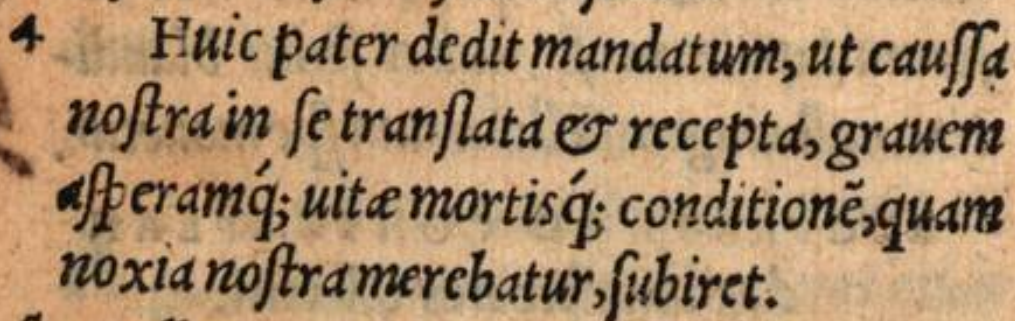 4 Huic pater dedit mandatum, ut cauſſa
noſtra in ſe tranſlata & recepta, grauem
aſperamq́; uitæ mortisq́; conditionẽ, quam
noxia noſtra merebatur, ſubiret.